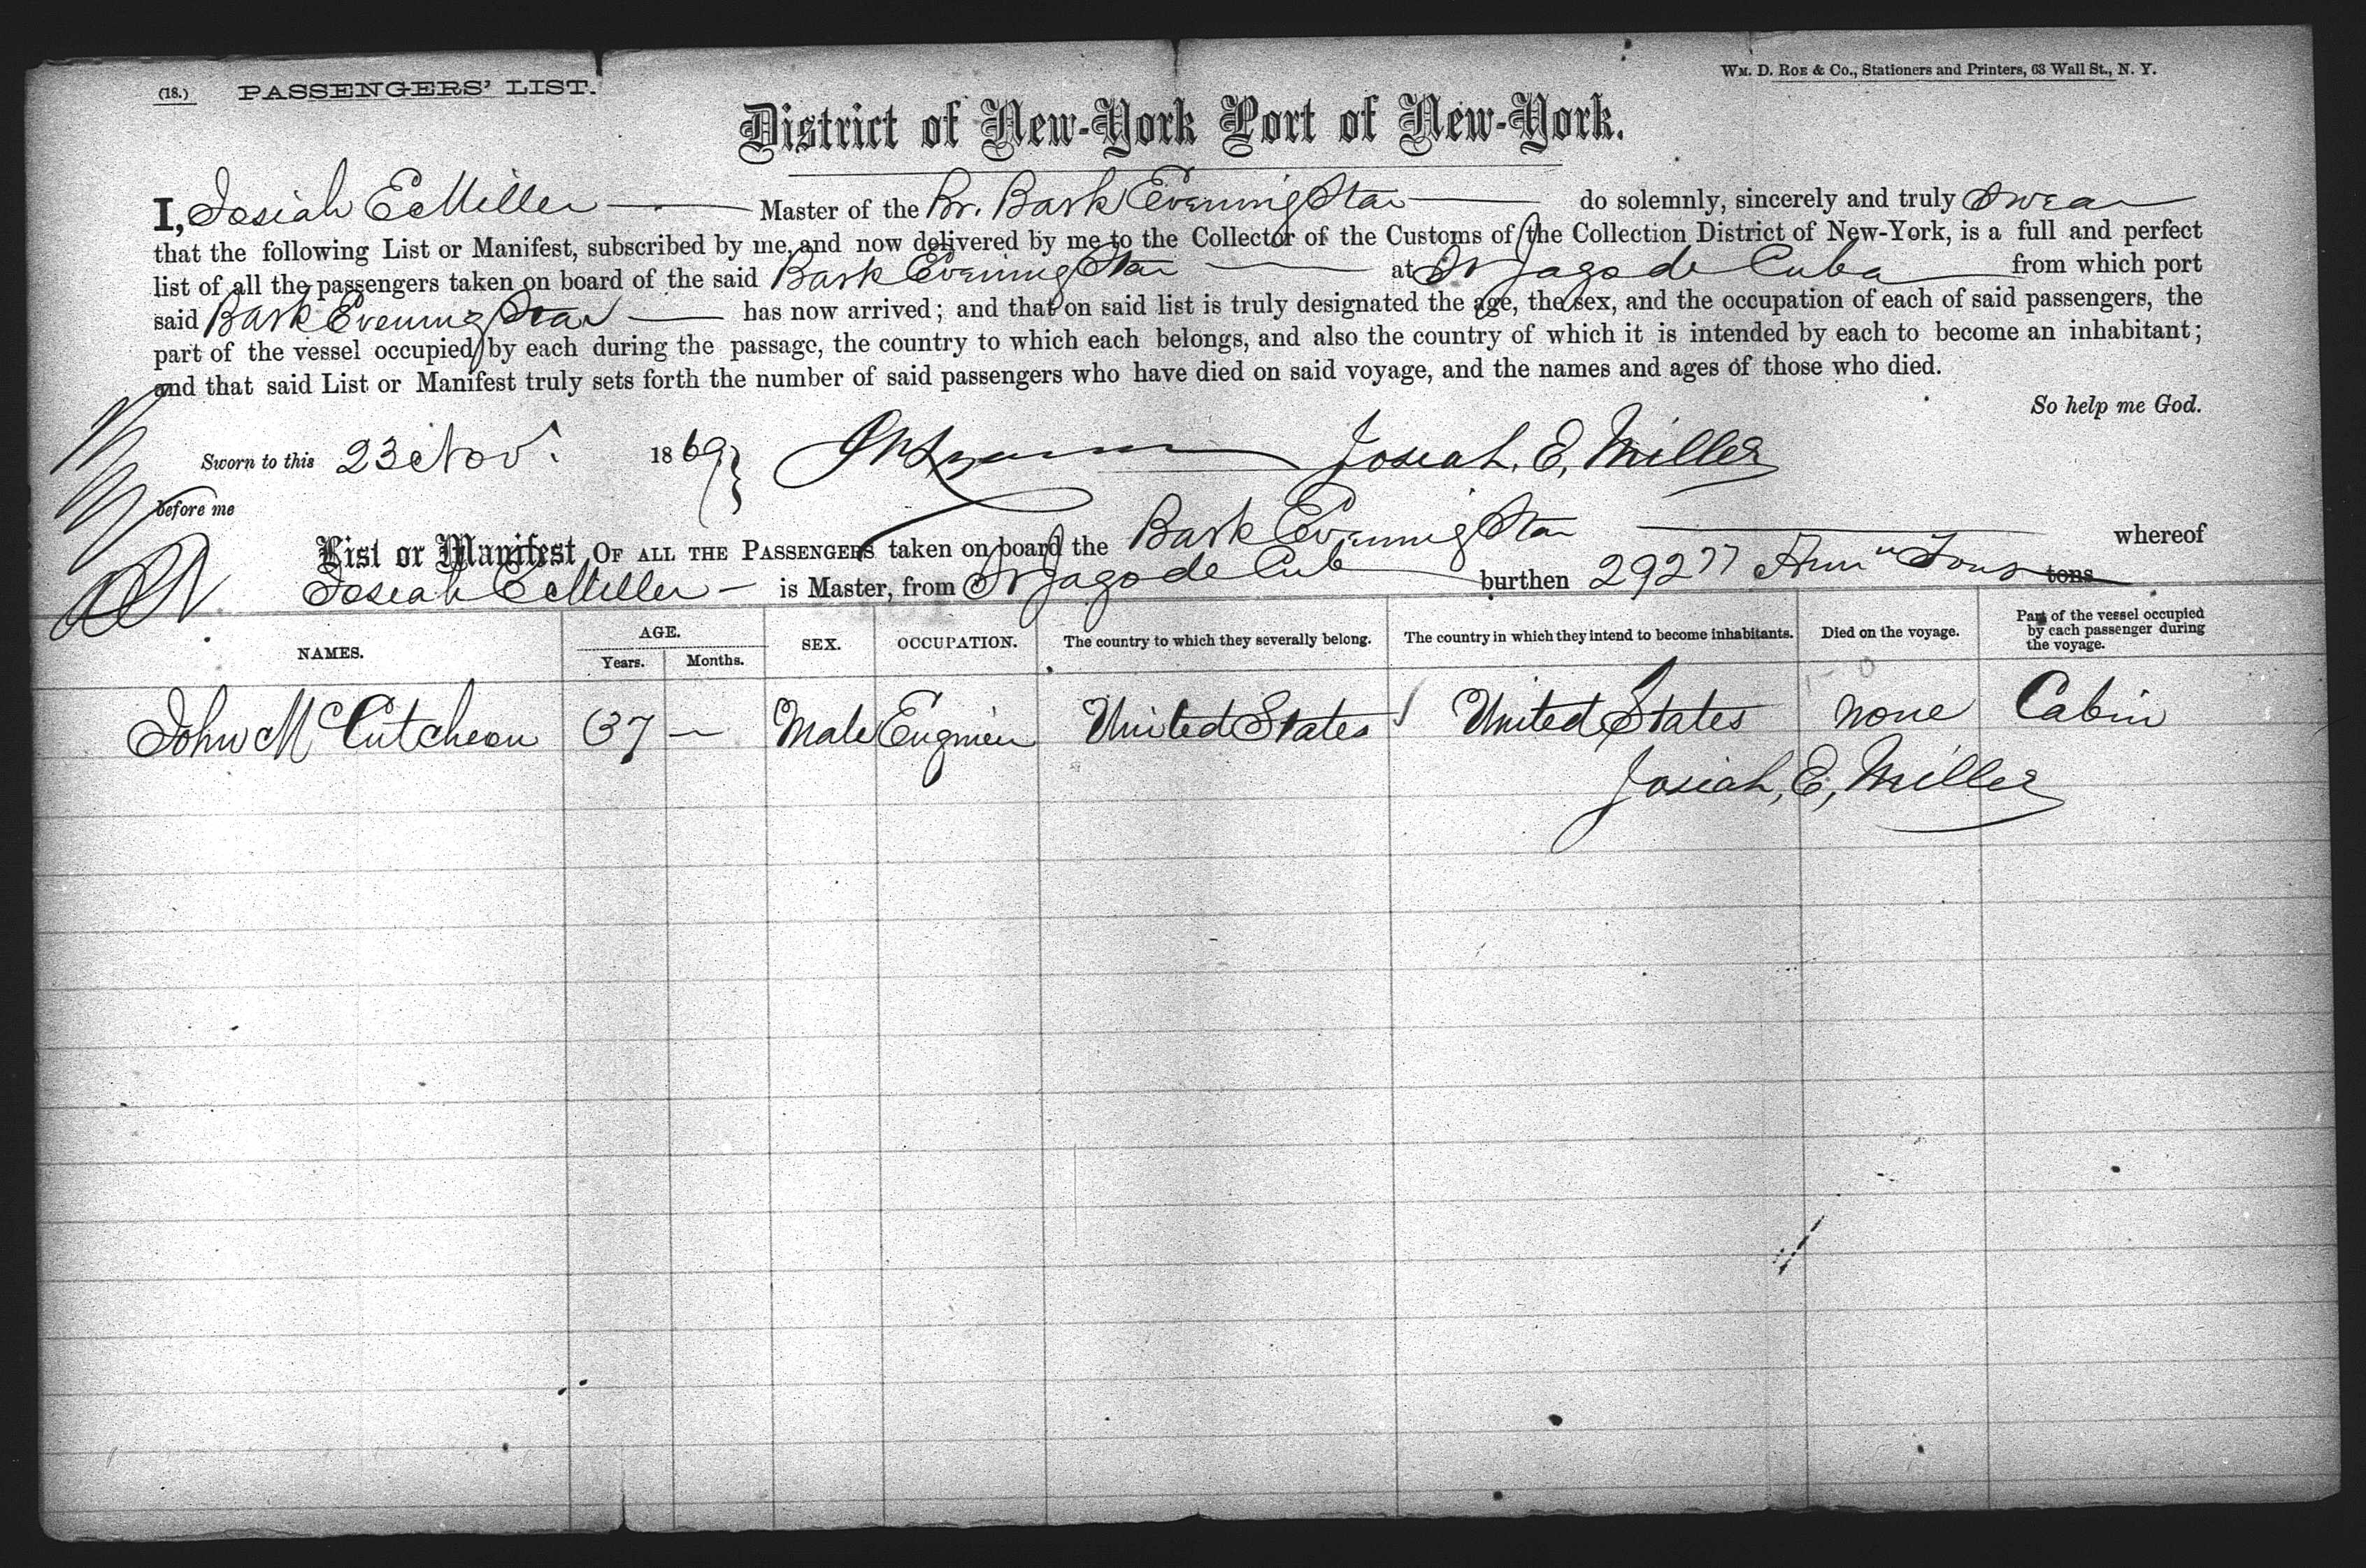 (18.) PASSENGERS' LIST.
WM. D. ROE & Co., Stationers and Printers, 63 Wall St., N. Y.
District of New-York Port of New-York.
I, Josiah E Miller Master of the Br. Bark Evening Star do solemnly, sincerely and truly swear
that the following List or Manifest, subscribed by me, and now delivered by me to the Collector of the Customs of the Collection District of New-York, is a full and perfect
list of all the passengers taken on board of the said Bark Evening Star at St Jago de Cuba from which port
said Bark Evening Star has now arrived; and that on said list is truly designated the age, the sex, and the occupation of each of said passengers, the
part of the vessel occupied by each during the passage, the country to which each belongs, and also the country of which it is intended by each to become an inhabitant;
and that said List or Manifest truly sets forth the number of said passengers who have died on said voyage, and the names and ages of those who died.
So help me God.
Sworn to this 23 Nov. 1869 Josiah, E, Miller
before me
List or Manifest OF ALL THE PASSENGERS taken on board the Bark Evening Star whereof
Josiah E Miller is Master, from St Jago de Cub burthen 292 77 Tons tons
NAMES. AGE. Years. Months. SEX. OCCUPATION. The country to which they severally belong. The country in which they intend to become inhabitants. Died on the voyage. Part of the vessel occupied by each passenger during the voyage.
John McCutcheon 37 — Male Engineer United States United States none Cabin
Josiah, E, Miller